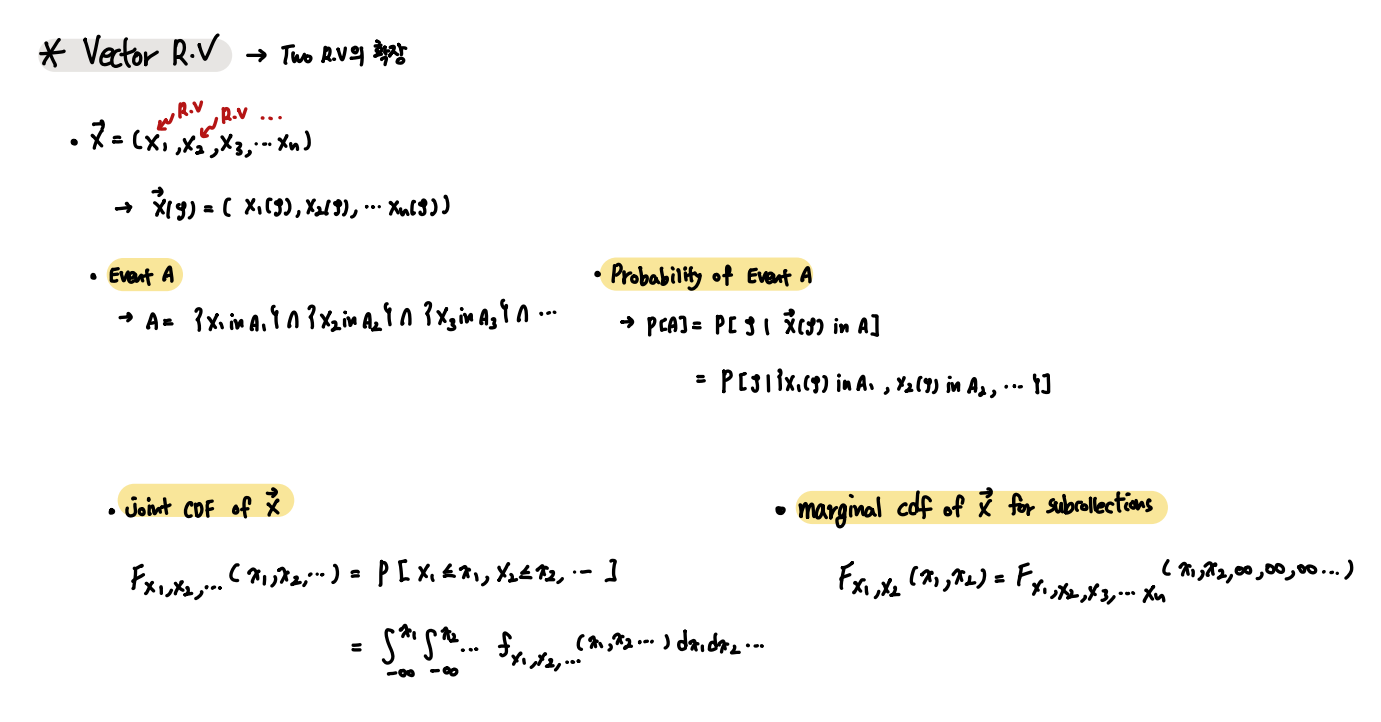 * Vector R.V → Two R.V의 확장
R.V R.V ...
• X⃗ = (X₁, X₂, X₃, ... Xₙ)
→ X⃗(ζ) = ( X₁(ζ), X₂(ζ), ... Xₙ(ζ))
• Event A
→ A = {X₁ in A₁} ∩ {X₂ in A₂} ∩ {X₃ in A₃} ∩ ...
• Probability of Event A
→ P[A] = P[ ζ | X⃗(ζ) in A]
= P[ζ|{X₁(ζ) in A₁, X₂(ζ) in A₂, ... }]
• joint CDF of X⃗
F_{X₁,X₂,...} (x₁,x₂,...) = P[ X₁ ≤ x₁, X₂ ≤ x₂, ... ]
= ∫_{-∞}^{x₁} ∫_{-∞}^{x₂} ... f_{X₁,X₂,...} (x₁,x₂ ...) dx₁dx₂ ...
• marginal cdf of X⃗ for subcollections
F_{X₁,X₂} (x₁,x₂) = F_{X₁,X₂,X₃,... Xₙ} (x₁,x₂,∞,∞,∞...)